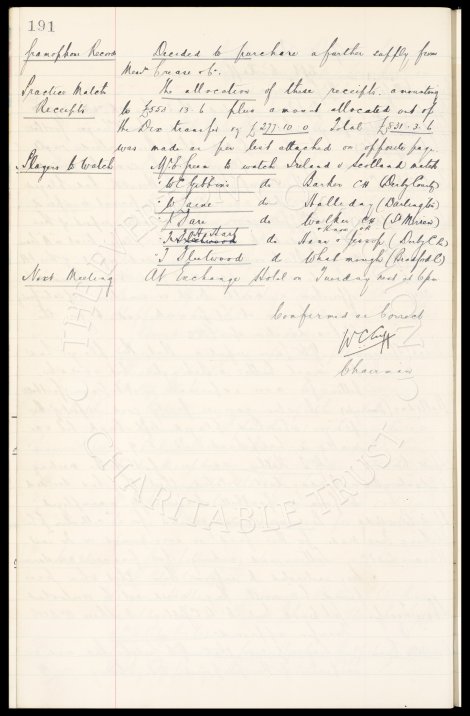 191
Gramophone Records Decided to purchase a further supply from
Messrs Crease & Co.
Practice Match The allocation of these receipts amounting
Receipts to £553.13.6 plus amount allocated out of
the Dix transfer of £277.10.0 Total £831.3.6
was made as per list attached on opposite page.
Players to Watch Mr Green to watch Ireland v Scotland match
" W E Gibbins do Barker CH (Derby County)
" do Halliday (Darlington)
" do Walker CH (St Mirren)
" H Hart do Hann & Jessop (Derby C R)
" T Fleetwood do (Bradford C)
Next Meeting At Exchange Hotel on Tuesday next at 6pm
Confirmed as Correct
W C Cuff
Chairman
CHARITABLE TRUST